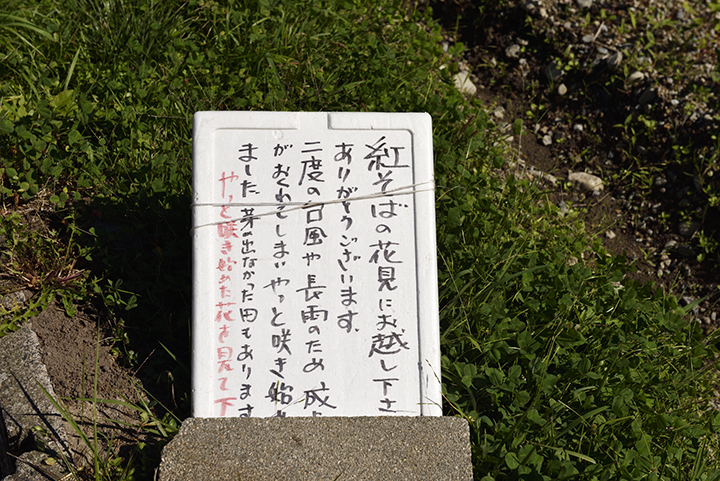 紅そばの花見にお越し下さ
ありがとうございます。
二度の台風や長雨のため成
がおくれてしまいやっと咲き始
ました。芽の出なかった田もあります
やっと咲き始めた花を見て下